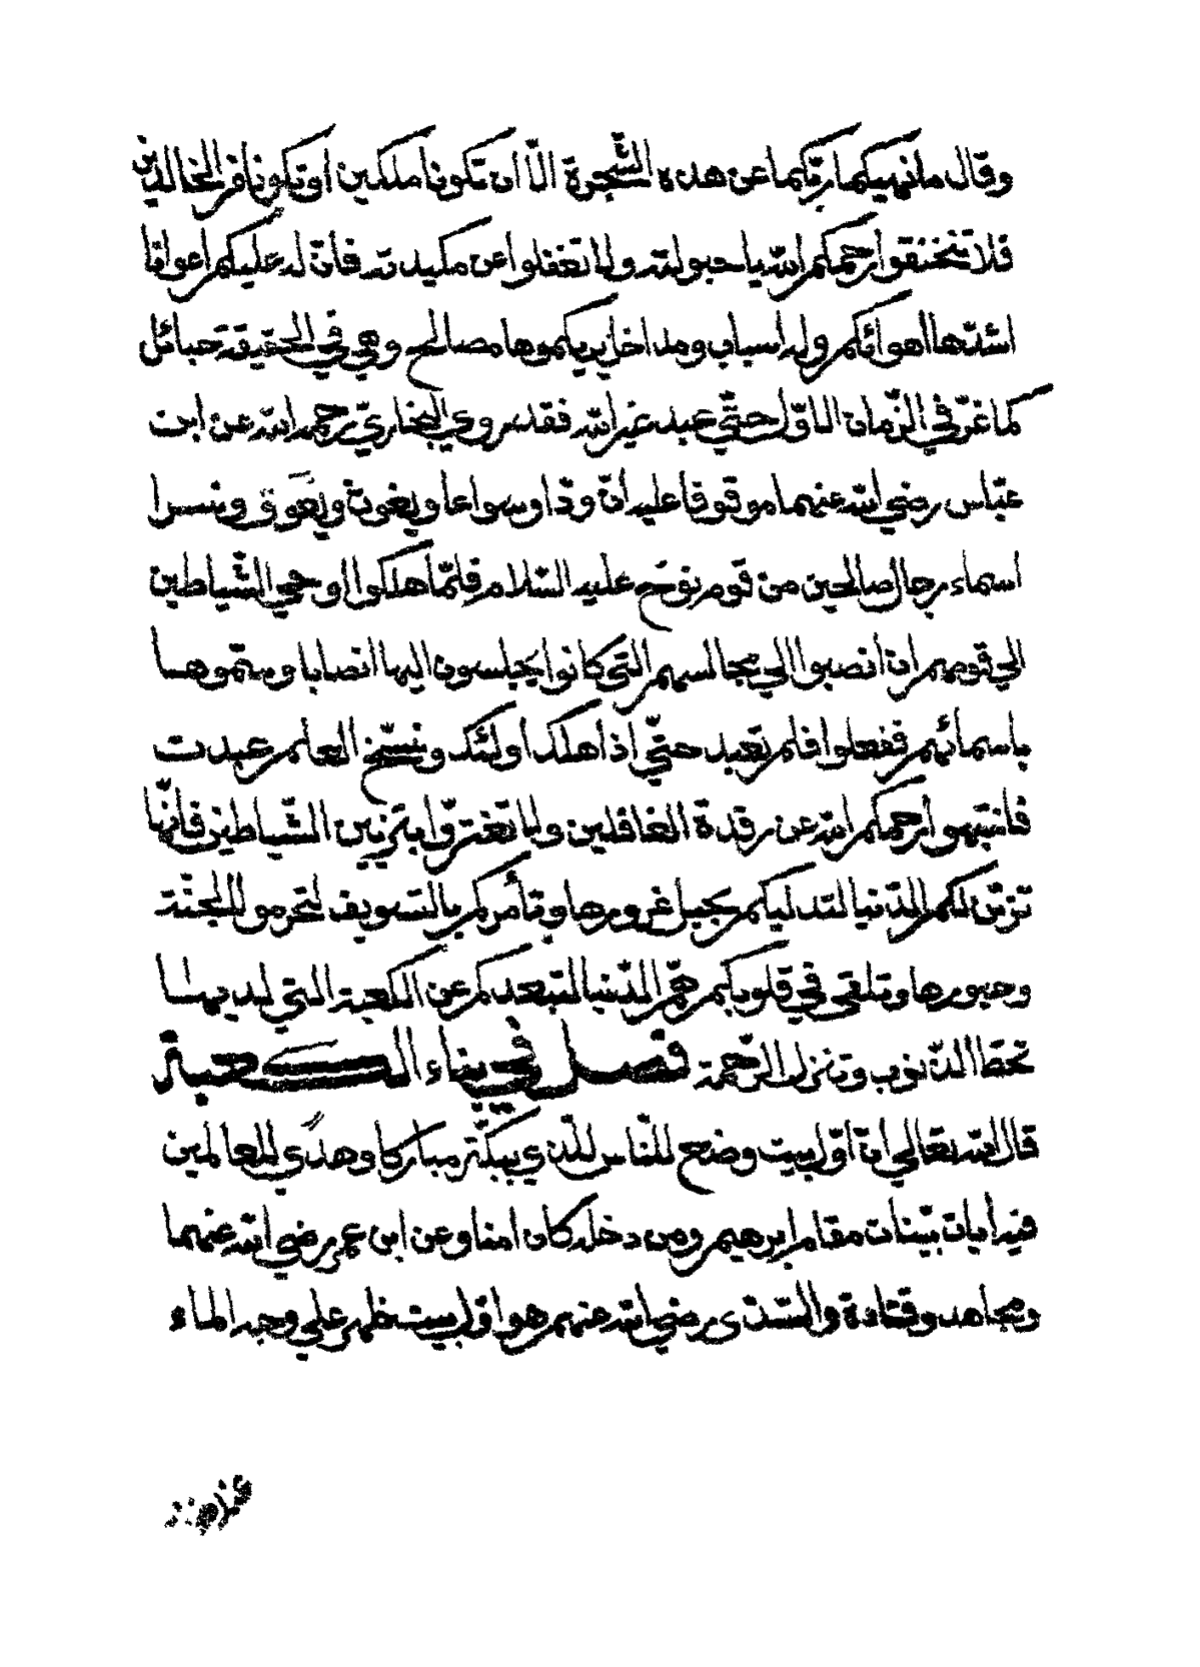 وقال ما نهيكما ربّكما عن هذه الشّجرة الّا ان تكونا ملكين أو تكونا من الخالدين
فلا تختنقوا رحمكم الله بأحبولته ولا تغفلوا عن مكيدته فانّ له عليكم اعوانا
اشدّها اهوائكم وله اسباب ومداخل يريكموها مصالح وهي في الحقيقة حبائل
كما غرّ في الزّمان الاوّل حتّي عبد غير الله فقد روي البخاريّ رحمه الله عن ابن
عبّاس رضي الله عنهما موقوفا عليه انّ ودّا وسواعا ويغوث ويعوق ونسرا
اسماء رجال صالحين من قوم نوح عليه السّلام فلمّا هلكوا اوحي الشّياطين
الي قومهم ان انصبوا الي مجالسهم التي كانوا يجلسون اليها انصابا وسمّوها
باسمائهم ففعلوا فلم تعبد حتّي اذا هلك أولئك ونسّخ العلم عبدت
فانتبهوا رحمكم الله عن رقدة الغافلين ولا تغترّوا بتزيين الشّياطين فانّها
تزيّن لكم الدّنيا لتدليكم بحبل غرورها وتأمركم بالتسويف لتحرموا الجنّة
وحبورها وتلقي في قلوبكم همّ الدّنيا لتبعدكم عن الكعبة التي لديها
تحطّ الذّنوب وتنزل الرّحمة فصل في بناء الكعبة
قال الله تعالي انّ اوّل بيت وضع للنّاس للّذي ببكّة مباركا وهدًي للعالمين
فيه ايات بيّنات مقام ابرهيم ومن دخله كان امنا وعن ابن عمر رضي الله عنهما
ومجاهد وقتادة والسّدّي رضي الله عنهم هو اوّل بيت ظهر علي وجه الماء